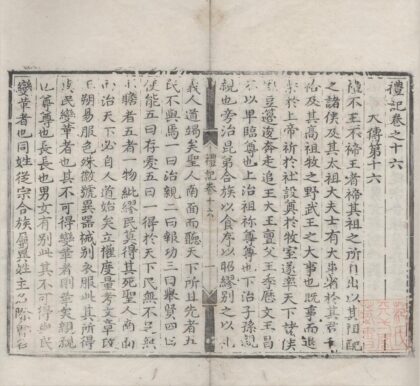 禮記卷之十六
大傳第十六
禮不王不禘王者禘其祖之所自出以其祖配
之諸侯及其太祖大夫士有大事省於其君干
祫及其高祖牧之野武王之大事也既事而退
柴於上帝祈於社設奠於牧室遂率天下諸侯
執豆籩逡奔走追王大王亶父王季歷文王昌
不以卑臨尊也上治祖禰尊尊也下治子孫親
親也旁治昆弟合族以食序以昭繆別之以禮
禮記卷十六 一
義人道竭矣聖人南面而聽天下所且先者五
民不與焉一曰治親二曰報功三曰舉賢四曰
使能五曰存愛五曰一得於天下民無不足無
不贍者五者一物紕繆民莫得其死聖人南面
而治天下必自人道始矣立權度量考文章改
正朔易服色殊徽號異器械別衣服此其所得
與民變革者也其不可得變革者則有矣親親
也尊尊也長長也男女有別此其不可得與民
變革者也同姓從宗合族屬異姓主名治際會名